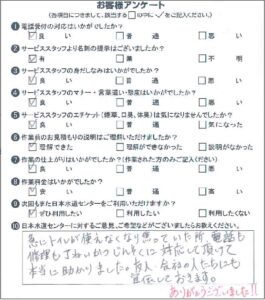 お客様アンケート
(各項目につきまして、該当する□の中に✓をご記入ください。)
❶電話受付の対応はいかがでしたか?
☑良い □普通 □悪い
❷サービススタッフより名刺の提示はございましたか?
☑有 □無 □不明
❸サービススタッフの身だしなみはいかがでしたか?
☑良い □普通 □悪い
❹サービススタッフのマナー・言葉遣い・態度はいかがでしたか?
☑良い □普通 □悪い
❺サービススタッフのエチケット(煙草、口臭、体臭)は気になりませんでしたか?
☑良い □普通 □気になった
❻作業前のお見積もりの説明はご理解いただけましたか?
☑理解できた □理解ができなかった □説明がなかった
❼作業の仕上がりはいかがでしたか?(作業された方のみご記入ください)
☑良い □普通 □悪い
❽作業料金はいかがでしたか?
☑安い □普通 □高い
❾次回もまた日本水道センターをご利用いただけますか?
☑ぜひ利用したい □利用したい □利用したくない
❿日本水道センターに対するご意見、ご希望などがございましたらお教えください。
急にトイレが使えなくなり焦っていた所、電話も
修理もていねいかつじん速に対応して頂けて
本当に助かりました。友人・会社の人たちにも
宣伝しておきます。
ありがとうございました!!